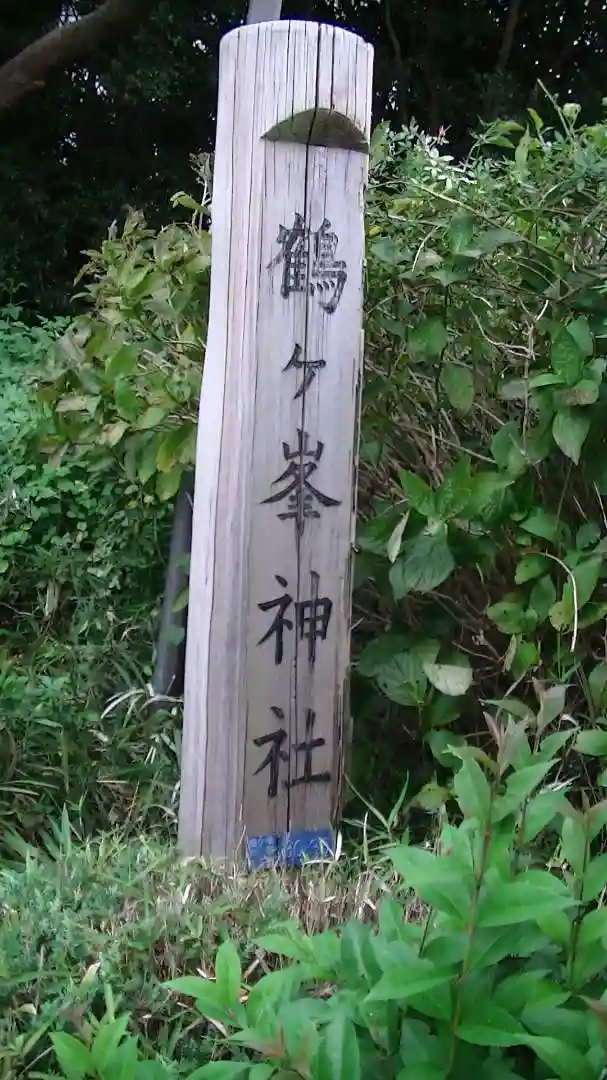 鶴ヶ峯神社